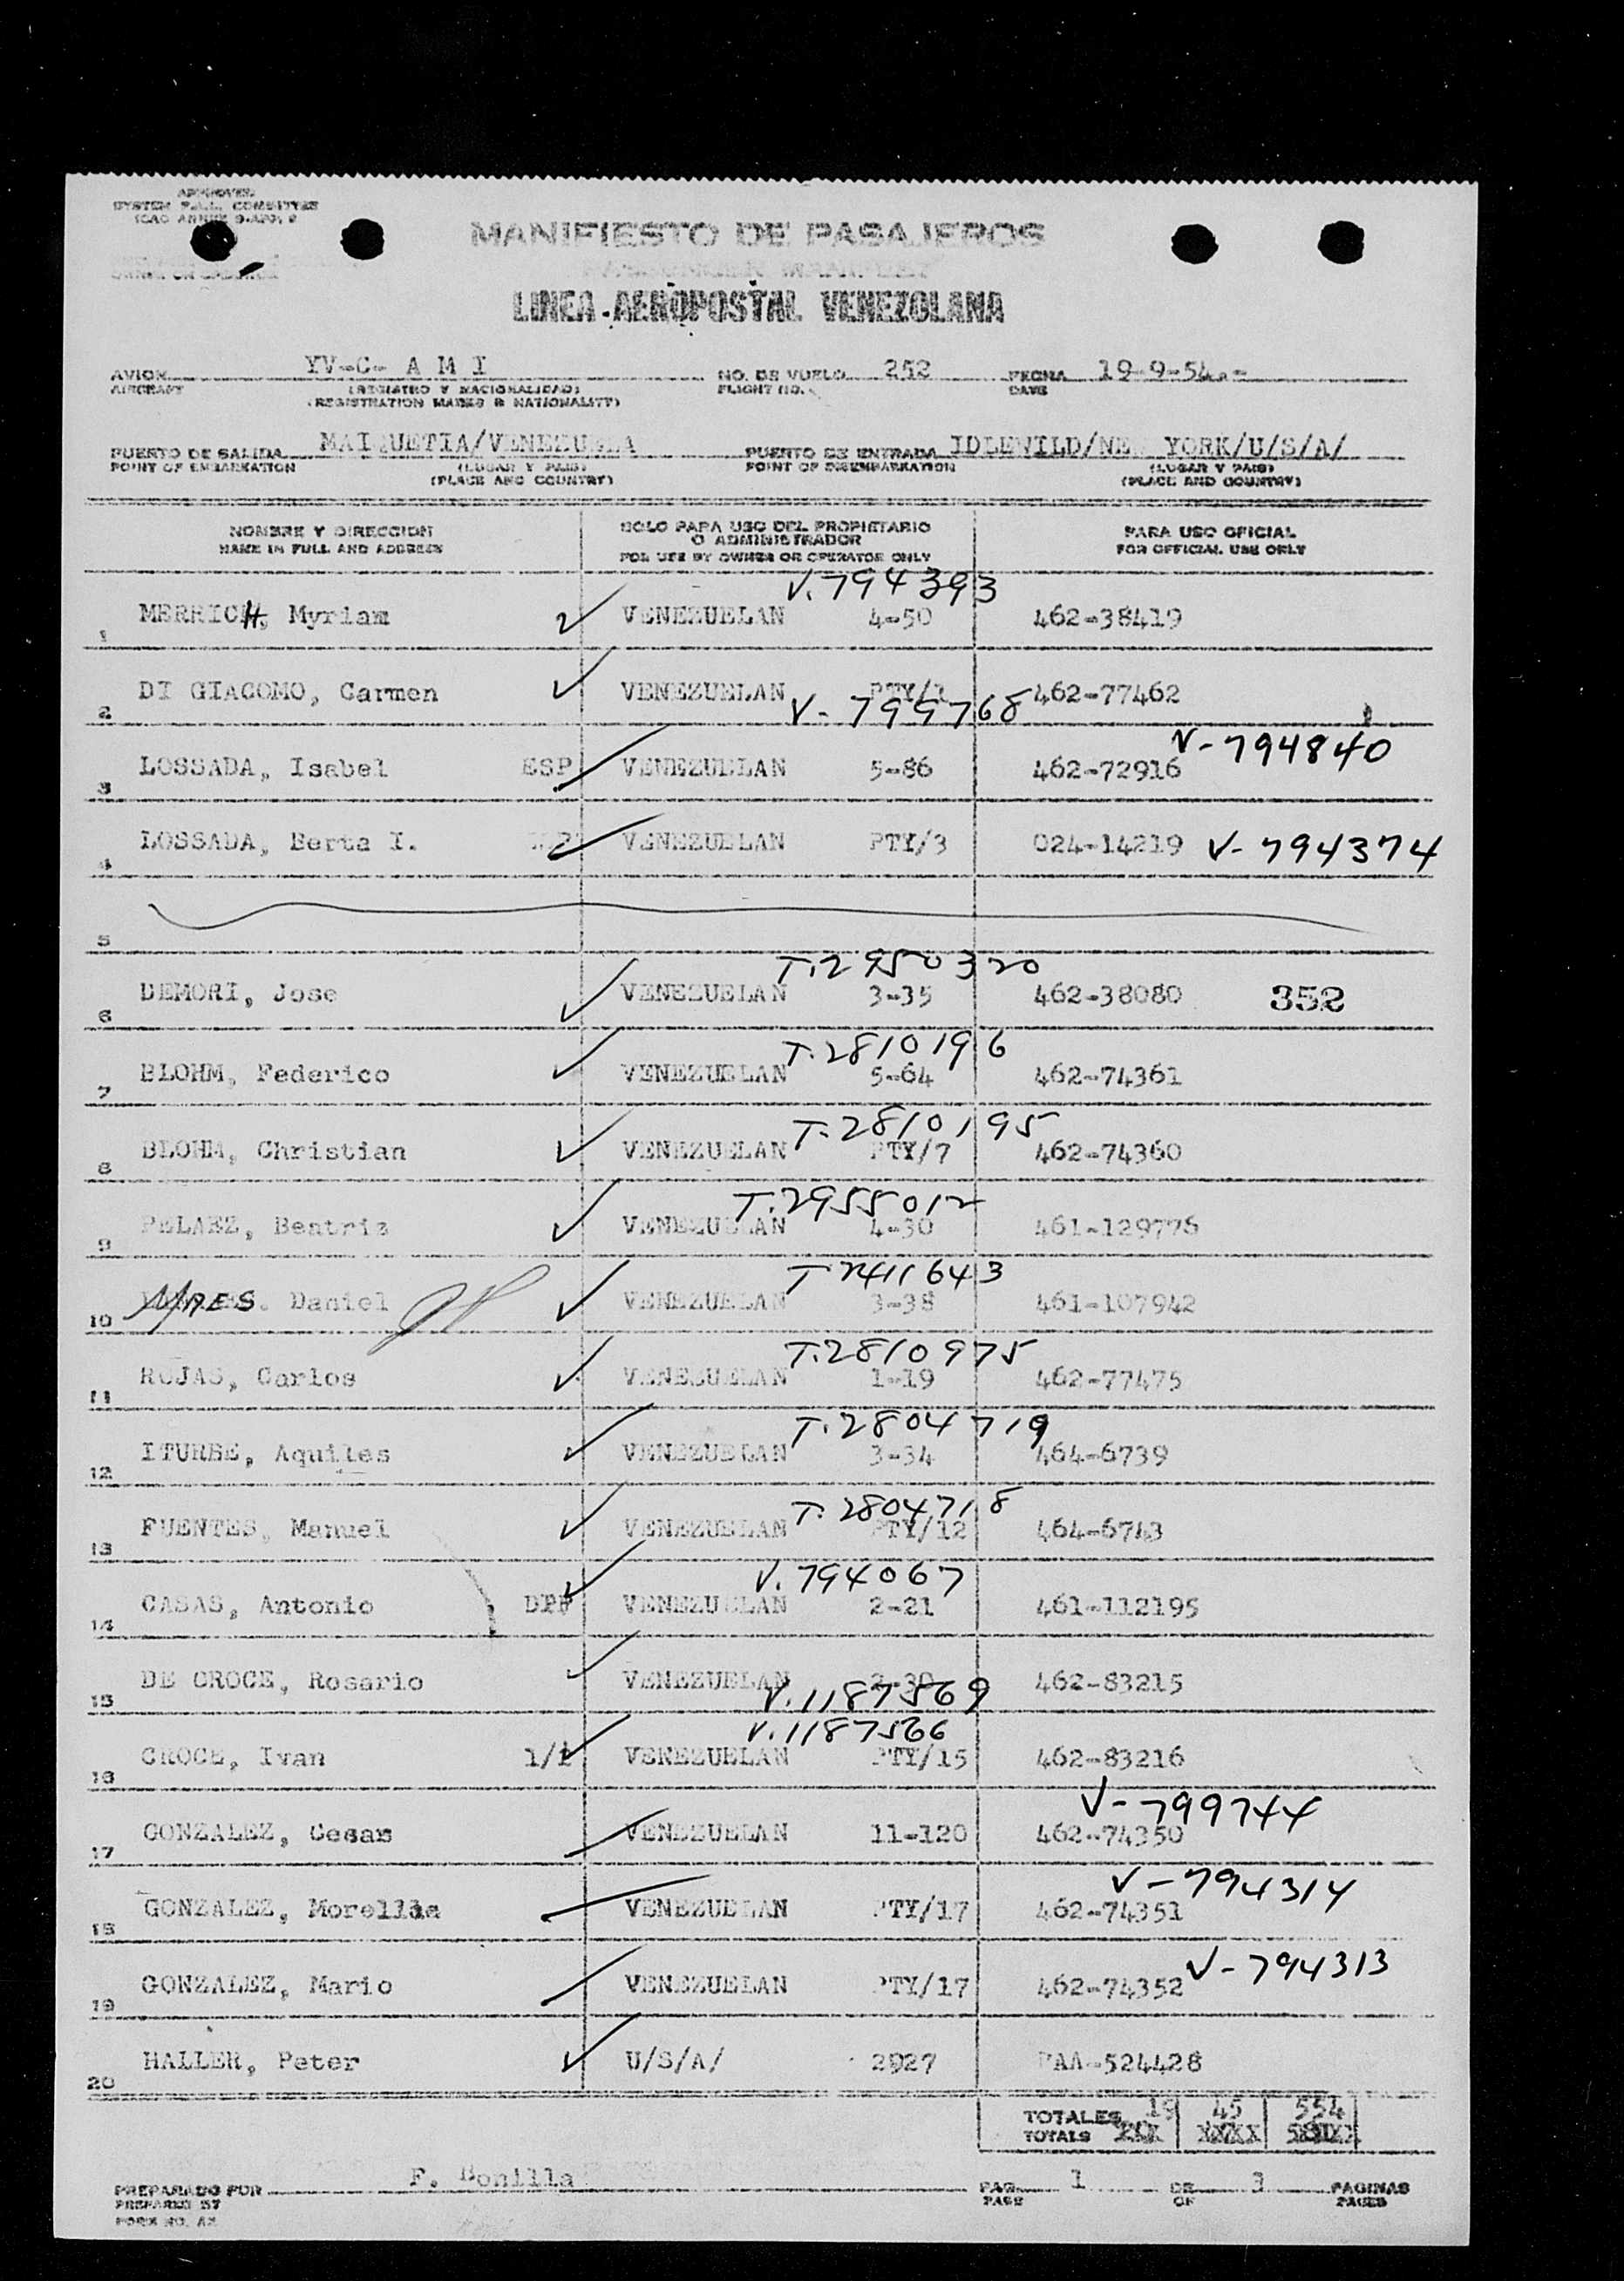 APPROVED
SYSTEM F.A.L. COMMITTEE
ICAO ANNEX 9-APP. 2
MANIFIESTO DE PASAJEROS
PASSENGER MANIFEST
LINEA AEROPOSTAL VENEZOLANA
AVION YV-C- A M I NO. DE VUELO 252 FECHA 19-9-54.-
AIRCRAFT (REGISTRO Y NACIONALIDAD) FLIGHT NO. DATE
(REGISTRATION MARKS & NATIONALITY)
PUERTO DE SALIDA MAIQUETIA/VENEZUELA PUERTO DE ENTRADA IDLEWILD/NEW YORK/U/S/A/
POINT OF EMBARKATION (LUGAR Y PAIS) POINT OF DISEMBARKATION (LUGAR Y PAIS)
(PLACE AND COUNTRY) (PLACE AND COUNTRY)
NOMBRE Y DIRECCION SOLO PARA USO DEL PROPIETARIO PARA USO OFICIAL
NAME IN FULL AND ADDRESS O ADMINISTRADOR FOR OFFICIAL USE ONLY
FOR USE BY OWNER OR OPERATOR ONLY
V.794393
1 MERRICH, Myriam VENEZUELAN 4-50 462-38419
2 DI GIACOMO, Carmen VENEZUELAN PTY/1 462-77462
V-799768
V-794840
3 LOSSADA, Isabel ESP VENEZUELAN 5-86 462-72916
4 LOSSADA, Berta I. VENEZUELAN PTY/3 024-14219 V-794374
5
T.2950320
6 DEMORI, Jose VENEZUELAN 3-35 462-38080 352
T.2810196
7 BLOHM, Federico VENEZUELAN 5-64 462-74361
T.2810195
8 BLOHM, Christian VENEZUELAN PTY/7 462-74360
T.2955012
9 PELAEZ, Beatriz VENEZUELAN 4-30 461-129776
T.2411643
10 Daniel VENEZUELAN 3-38 461-107942
T.2810975
11 ROJAS, Carlos VENEZUELAN 1-19 462-77475
T.2804719
12 ITURBE, Aquiles VENEZUELAN 3-34 464-6739
T.2804718
13 FUENTES, Manuel VENEZUELAN PTY/12 464-6743
V.794067
14 CASAS, Antonio VENEZUELAN 2-21 461-112195
15 DE CROCE, Rosario VENEZUELAN 2-30 462-83215
V.1187569
V.1187566
16 CROCE, Ivan 1/2 VENEZUELAN PTY/15 462-83216
V-799744
17 GONZALEZ, Cesar VENEZUELAN 11-120 462-74350
V-794314
18 GONZALEZ, Morella VENEZUELAN PTY/17 462-74351
V-794313
19 GONZALEZ, Mario VENEZUELAN PTY/17 462-74352
20 HALLER, Peter U/S/A/ 2927 PAA-524428
TOTALES 19 45 554
TOTALS
PREPARADO POR F. Bonilla PAG. 1 DE 3 PAGINAS
PREPARED BY PAGE OF PAGES
FORM NO. A2